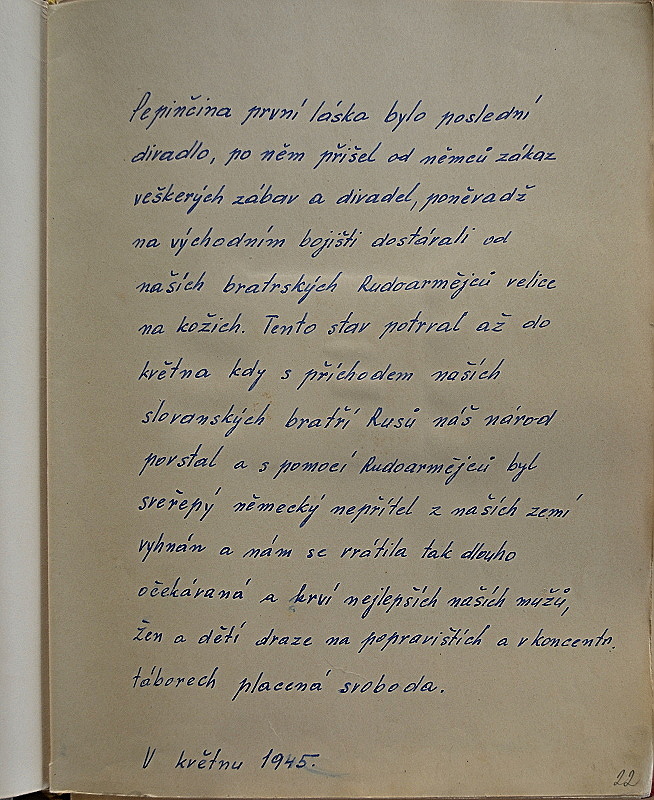 Pepinčina první láska bylo poslední
divadlo, po něm přišel od němců zákaz
veškerých zábav a divadel, poněvadž
na východním bojišti dostávali od
našich bratrských Rudoarmějců velice
na kožich. Tento stav potrval až do
května kdy s příchodem našich
slovanských bratří Rusů náš národ
povstal a s pomocí Rudoarmějců byl
sveřepý německý nepřítel z našich zemí
vyhnán a nám se vrátila tak dlouho
očekávaná a krví nejlepších našich mužů,
žen a dětí draze na popravištích a v koncentr.
táborech placená svoboda.
V květnu 1945.
22